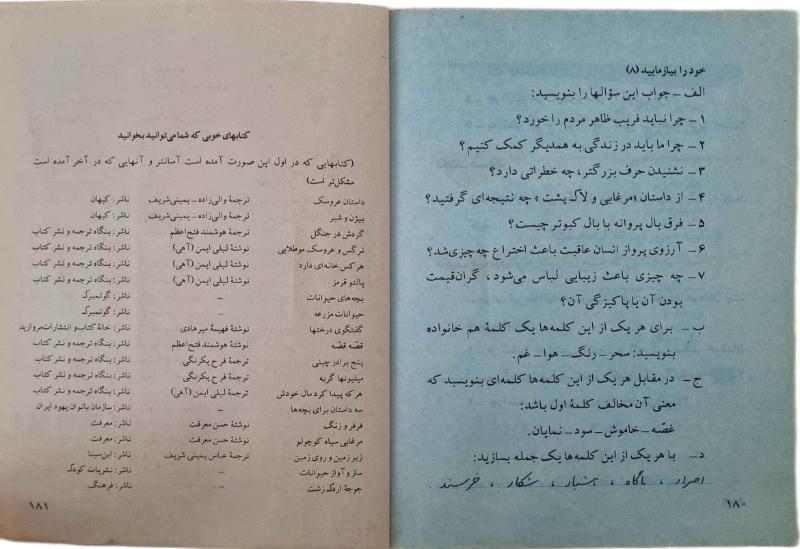 خود را بیازمایید (۸)
الف ـ جواب این سؤالها را بنویسید:
۱ ـ چرا نباید فریب ظاهر مردم را خورد؟
۲ ـ چرا ما باید در زندگی به همدیگر کمک کنیم؟
۳ ـ نشنیدن حرف بزرگتر، چه خطراتی دارد؟
۴ ـ از داستان «مرغابی و لاک پشت» چه نتیجه‌ای گرفتید؟
۵ ـ فرق بال پروانه با بال کبوتر چیست؟
۶ ـ آرزوی پرواز انسان عاقبت باعث اختراع چه چیزی شد؟
۷ ـ چه چیزی باعث زیبایی لباس می‌شود، گران‌قیمت
بودن آن یا پاکیزگی آن؟
ب ـ برای هر یک از این کلمه‌ها یک کلمهٔ هم خانواده
بنویسید: سحر ـ رنگ ـ هوا ـ غم.
ج ـ در مقابل هر یک از این کلمه‌ها کلمه‌ای بنویسید که
معنی آن مخالف کلمهٔ اول باشد:
غصّه ـ خاموش ـ سود ـ نمایان.
د ـ با هر یک از این کلمه‌ها یک جمله بسازید:
اصرار، ناگاه، هشیار، شکار، خرسند.
۱۸۰
کتابهای خوبی که شما می‌توانید بخوانید
(کتابهایی که در اول این صورت آمده است آسانتر و آنهایی که در آخر آمده است
مشکل‌تر است)
داستان عروسک ترجمهٔ والی‌زاده ـ یمینی‌شریف ناشر: کیهان
بیژن و شیر ترجمهٔ والی‌زاده ـ یمینی‌شریف ناشر: کیهان
گردش در جنگل ترجمهٔ هوشمند فتح‌اعظم ناشر: بنگاه ترجمه و نشر کتاب
نرگس و عروسک موطلایی نوشتهٔ لیلی ایمن (آهی) ناشر: بنگاه ترجمه و نشر کتاب
هر کس خانه‌ای دارد نوشتهٔ لیلی ایمن (آهی) ناشر: بنگاه ترجمه و نشر کتاب
پالتو قرمز نوشتهٔ لیلی ایمن (آهی) ناشر: بنگاه ترجمه و نشر کتاب
بچه‌های حیوانات ـ ناشر: گوتمبرگ
حیوانات مزرعه ـ ناشر: گوتمبرگ
گفتگوی درختها نوشتهٔ فهیمهٔ میرهادی ناشر: خانهٔ کتاب و انتشارات مروارید
قصّه قصّه نوشتهٔ هوشمند فتح‌اعظم ناشر: بنگاه ترجمه و نشر کتاب
پنج برادر چینی ترجمهٔ فرح یکرنگی ناشر: بنگاه ترجمه و نشر کتاب
میلیونها گربه ترجمهٔ فرح یکرنگی ناشر: بنگاه ترجمه و نشر کتاب
هر که پیدا کرد مال خودش ترجمهٔ لیلی ایمن (آهی) ناشر: بنگاه ترجمه و نشر کتاب
سه داستان برای بچه‌ها ـ ناشر: سازمان بانوان یهود ایران
فرفر و زنگ نوشتهٔ حسن معرفت ناشر: معرفت
مرغابی سیاه کوچولو نوشتهٔ حسن معرفت ناشر: معرفت
زیر زمین و روی زمین ترجمهٔ عباس یمینی شریف ناشر: ابن‌سینا
ساز و آواز حیوانات ـ ناشر: نشریات کودک
جوجهٔ اردک زشت ـ ناشر: فرهنگ
۱۸۱